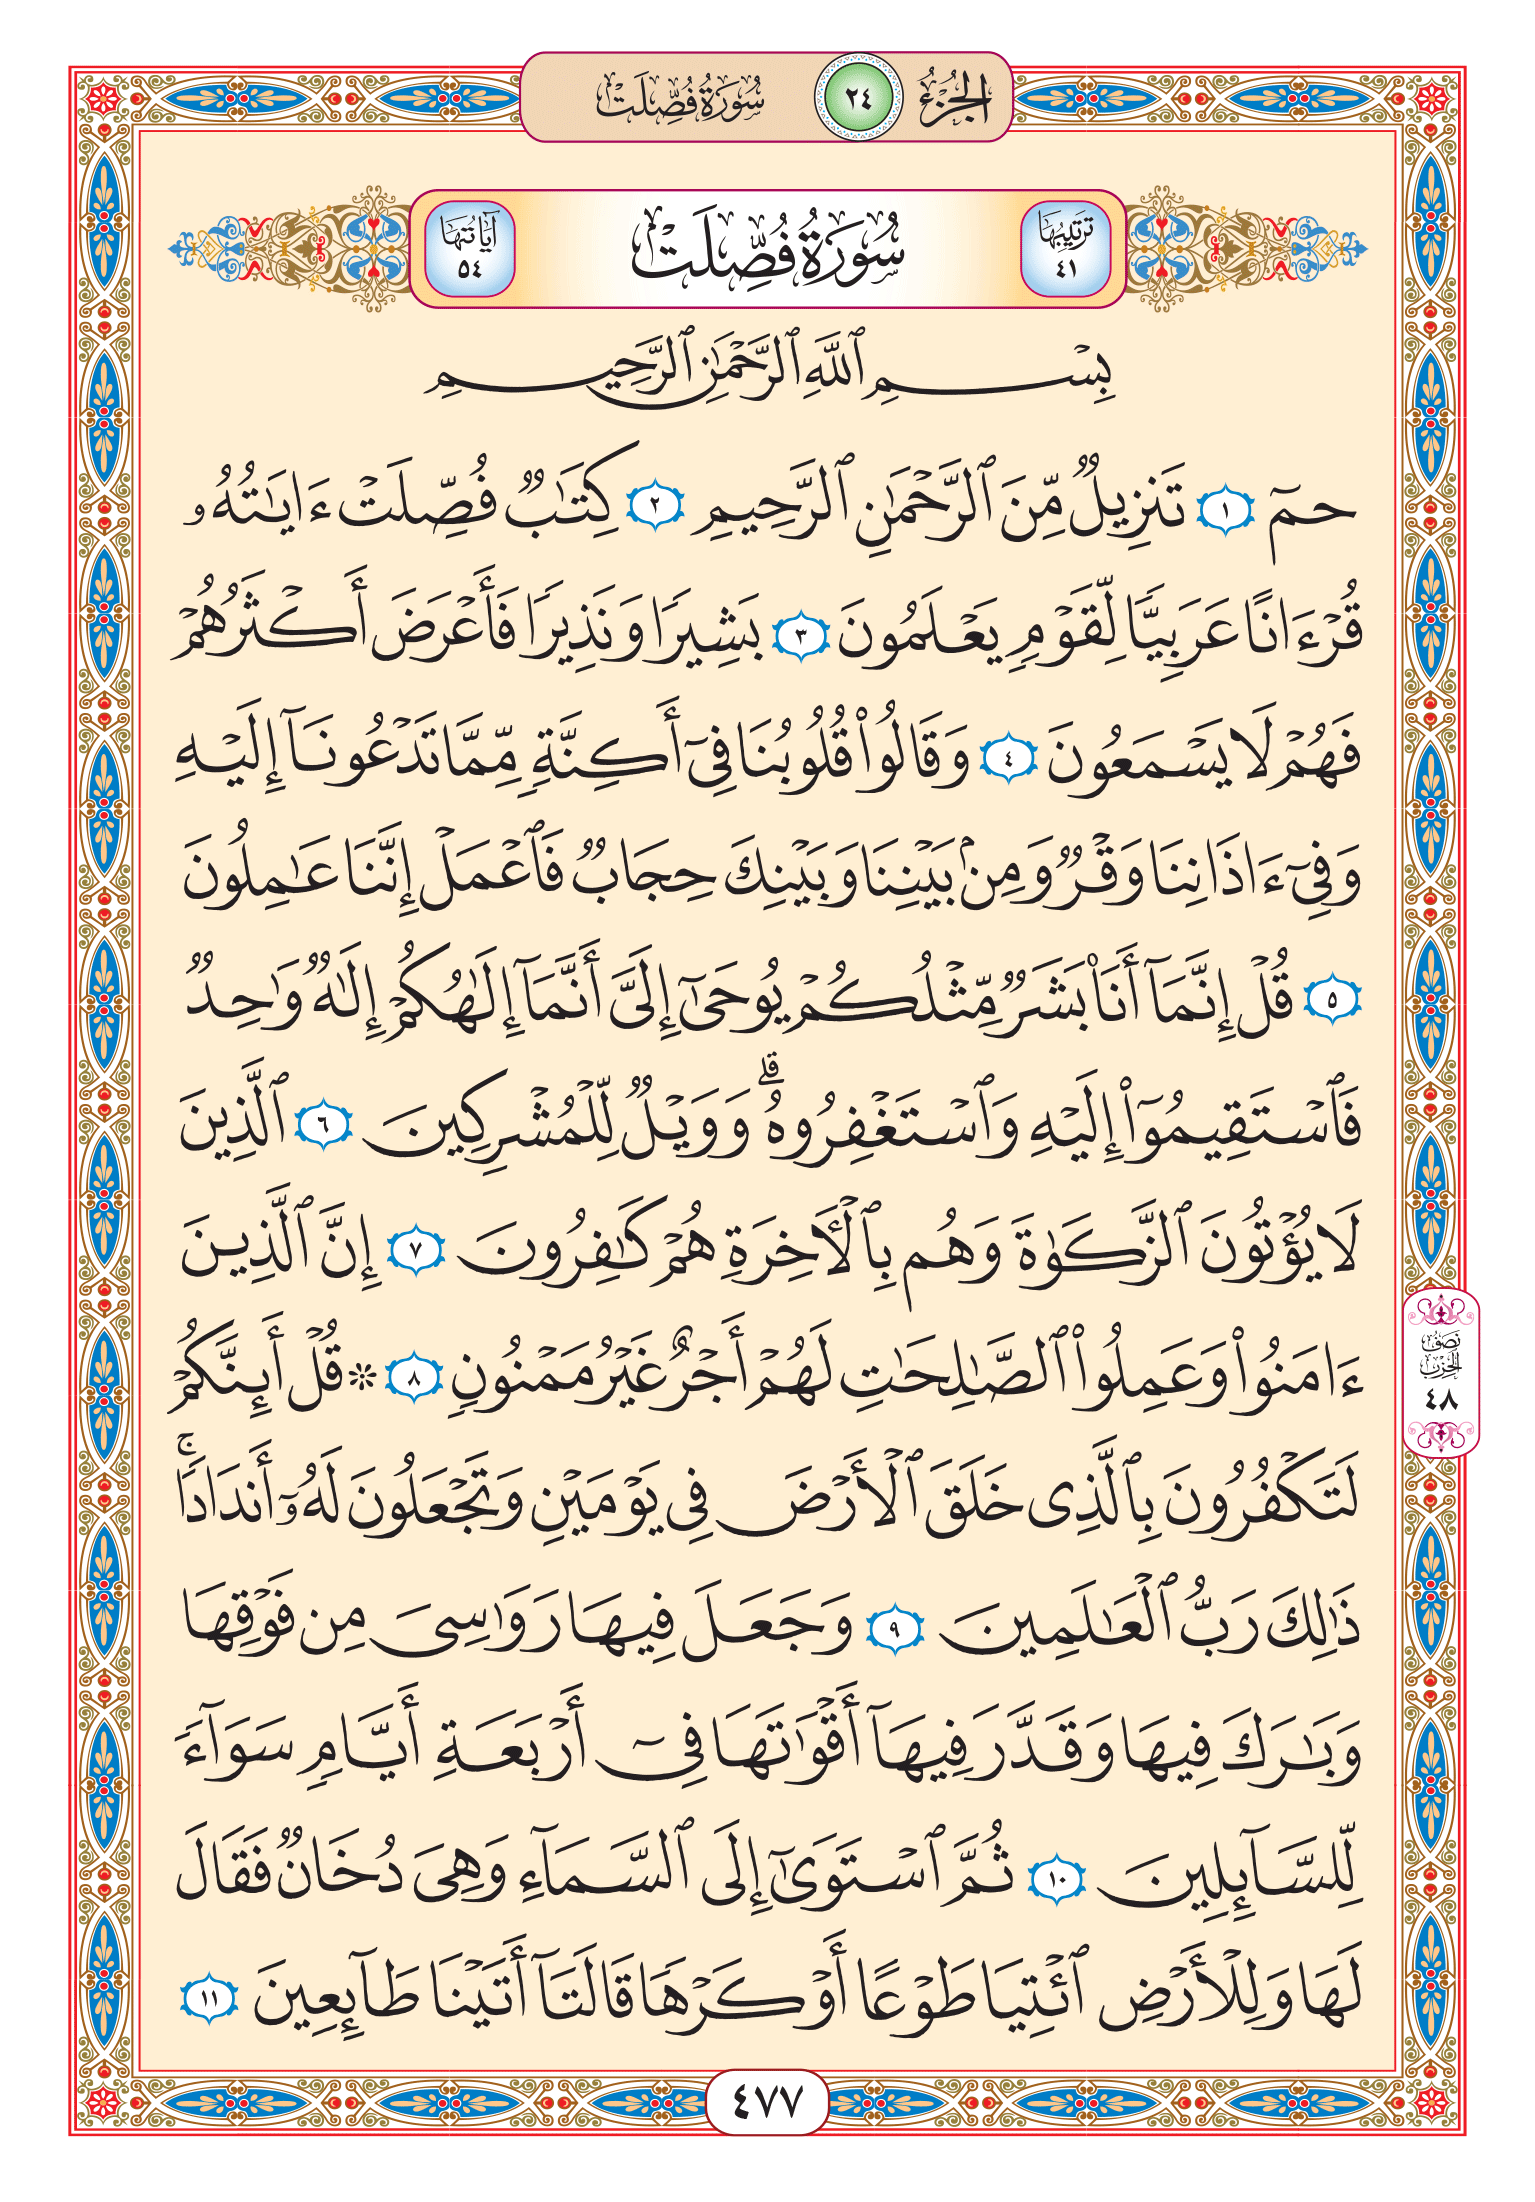 الجزء ٢٤ سورة فصلت
ترتيبها ٤١ سورة فصلت آياتها ٥٤
بِسْمِ ٱللَّهِ ٱلرَّحْمَٰنِ ٱلرَّحِيمِ
حمٓ ١ تَنزِيلٌ مِّنَ ٱلرَّحْمَٰنِ ٱلرَّحِيمِ ٢ كِتَٰبٌ فُصِّلَتْ ءَايَٰتُهُۥ
قُرْءَانًا عَرَبِيًّا لِّقَوْمٍ يَعْلَمُونَ ٣ بَشِيرًا وَنَذِيرًا فَأَعْرَضَ أَكْثَرُهُمْ
فَهُمْ لَا يَسْمَعُونَ ٤ وَقَالُوا۟ قُلُوبُنَا فِىٓ أَكِنَّةٍ مِّمَّا تَدْعُونَآ إِلَيْهِ
وَفِىٓ ءَاذَانِنَا وَقْرٌ وَمِنۢ بَيْنِنَا وَبَيْنِكَ حِجَابٌ فَٱعْمَلْ إِنَّنَا عَٰمِلُونَ
٥ قُلْ إِنَّمَآ أَنَا۠ بَشَرٌ مِّثْلُكُمْ يُوحَىٰٓ إِلَىَّ أَنَّمَآ إِلَٰهُكُمْ إِلَٰهٌ وَٰحِدٌ
فَٱسْتَقِيمُوٓا۟ إِلَيْهِ وَٱسْتَغْفِرُوهُ ۗ وَوَيْلٌ لِّلْمُشْرِكِينَ ٦ ٱلَّذِينَ
لَا يُؤْتُونَ ٱلزَّكَوٰةَ وَهُم بِٱلْأَخِرَةِ هُمْ كَٰفِرُونَ ٧ إِنَّ ٱلَّذِينَ
ءَامَنُوا۟ وَعَمِلُوا۟ ٱلصَّٰلِحَٰتِ لَهُمْ أَجْرٌ غَيْرُ مَمْنُونٍ ٨ ۞ قُلْ أَئِنَّكُمْ
لَتَكْفُرُونَ بِٱلَّذِى خَلَقَ ٱلْأَرْضَ فِى يَوْمَيْنِ وَتَجْعَلُونَ لَهُۥٓ أَندَادًا ۚ
ذَٰلِكَ رَبُّ ٱلْعَٰلَمِينَ ٩ وَجَعَلَ فِيهَا رَوَٰسِىَ مِن فَوْقِهَا
وَبَٰرَكَ فِيهَا وَقَدَّرَ فِيهَآ أَقْوَٰتَهَا فِىٓ أَرْبَعَةِ أَيَّامٍ سَوَآءً
لِّلسَّآئِلِينَ ١٠ ثُمَّ ٱسْتَوَىٰٓ إِلَى ٱلسَّمَآءِ وَهِىَ دُخَانٌ فَقَالَ
لَهَا وَلِلْأَرْضِ ٱئْتِيَا طَوْعًا أَوْ كَرْهًا قَالَتَآ أَتَيْنَا طَآئِعِينَ ١١
نصف
الحزب
٤٨
٤٧٧